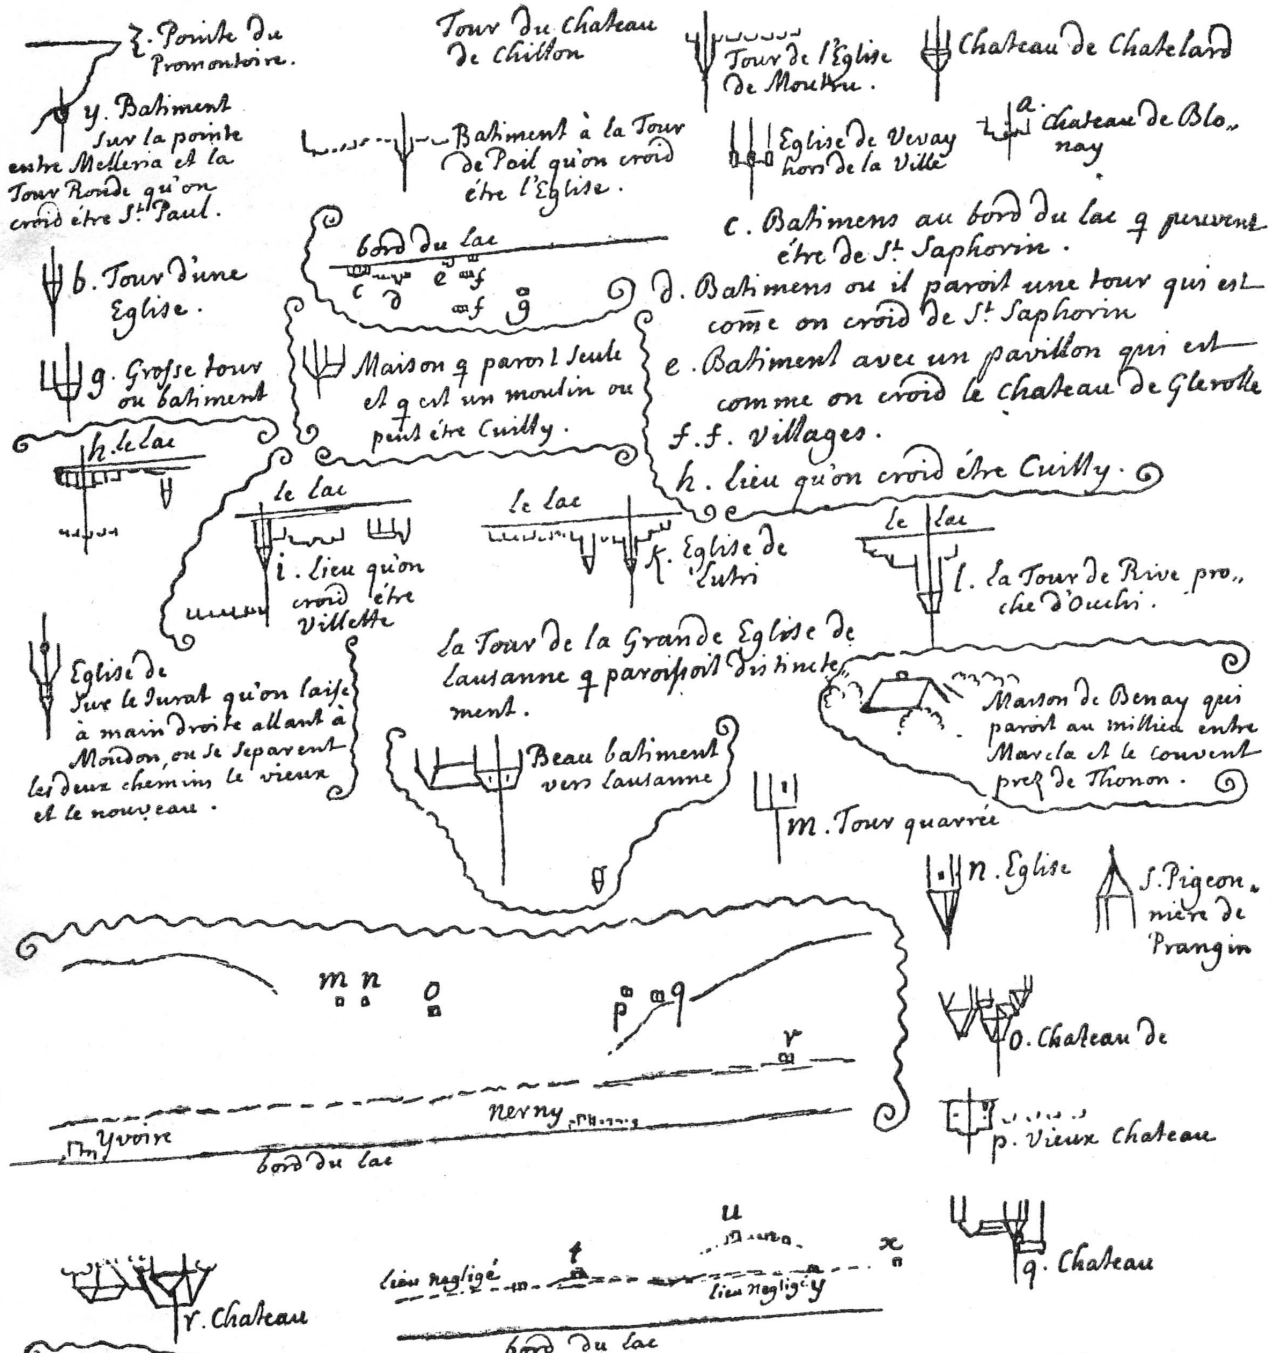 z. Pointe du
Promontoire.
y. Batiment
sur la pointe
entre Melleria et la
Tour Ronde qu'on
croid étre St. Paul.
Tour du Chateau
de Chillon
Tour de l'Eglise
de Moutru.
Chateau de Chatelard
Batiment à la Tour
de Pail qu'on croid
étre l'Eglise.
Eglise de Vevay
hors de la Ville
a. Chateau de Blo,,
nay
b. Tour d'une
Eglise.
bord du Lac
c
d
e
f
f
g
c. Batimens au bord du lac q peuvent
étre de St. Saphorin.
d. Batimens ou il paroit une tour qui est
com̄e on croid de St. Saphorin
e. Batiment avec un pavillon qui est
comme on croid le chateau de Glerolle
f. f. Villages.
h. Lieu qu'on croid étre Cuilly.
g. Grosse tour
ou batiment
Maison q paroit seule
et q est un moulin ou
peut étre Cuilly.
h. le lac
le lac
i. Lieu qu'on
croid étre
Villette
le lac
k. Eglise de
Lutri
le lac
l. La Tour de Rive pro,,
che d'Ouchi.
Eglise de
sur le Jurat qu'on laisse
à main droite allant à
Moudon, ou se separent
les deux chemins le vieux
et le nouveau.
La Tour de la Grande Eglise de
Lausanne q paroissoit distincte,,
ment.
Maison de Benay qui
paroit au millieu entre
Marcla et le Couvent
prez de Thonon.
Beau batiment
vers Lausanne
m. Tour quarrée
n. Eglise
s. Pigeon,,
niere de
Prangin
m n
o
p
q
r
o. Chateau de
Nerny
Yvoire
bord du lac
p. Vieux Chateau
q. Chateau
r. Chateau
u
t
x
lieu negligé
lieu negligé y
bord du lac